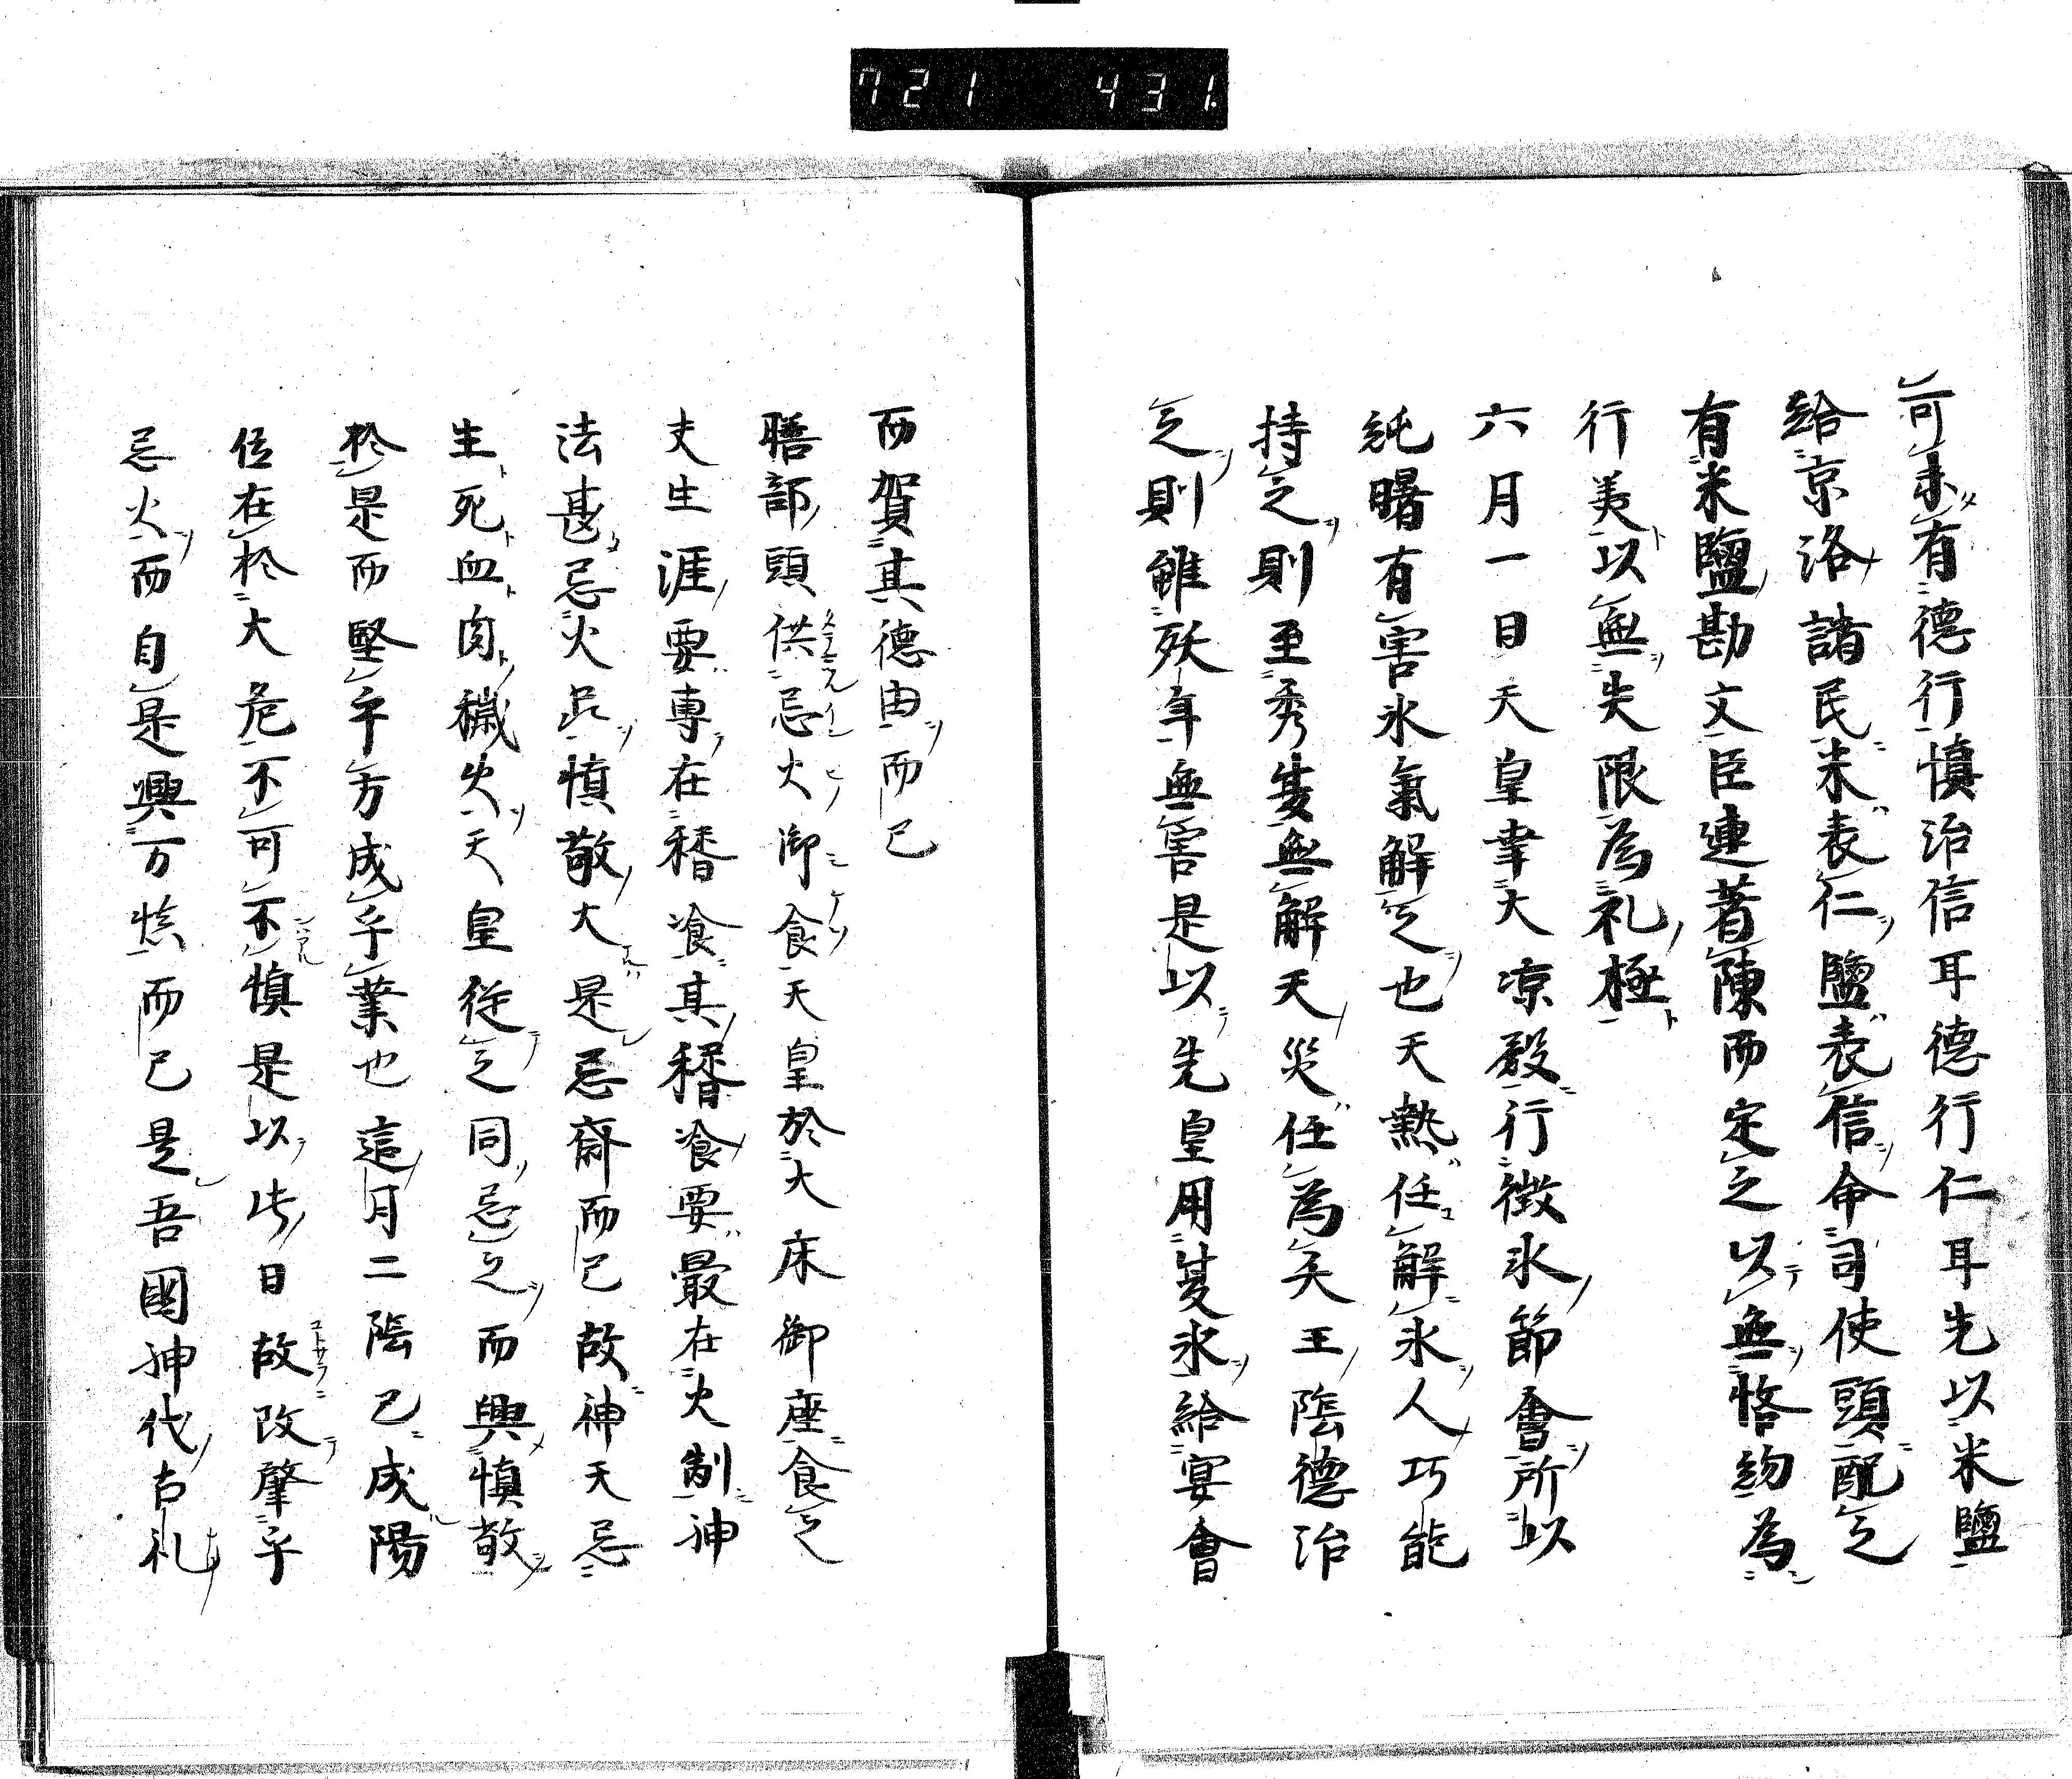 721 431
可未有德行慎治信耳德行仁耳先以米鹽
給京洛諸民米表仁鹽表信命司使頭配之
有米鹽勘文臣連著陳而定之以無悋約為
行美以無失限為礼極
六月一日天皇幸大凉殿行徴氷節會所以
純曙有害氷氣解之也天熱任解氷人巧能
持之則至秀隻無解天災任為矣王陰德治
之則雖殀年無害是以先皇用隻氷給宴會
而賀其德由而已
膳部頭供忌火御食天皇於大床御座食之
夫生涯要專在稽飡其稽飡要最在火制神
法甚忌火品慎敬大是忌齋而已故神天忌
生死血肉穢火天皇從之同忌之而興慎敬
於是而堅乎方成乎業也這月二陰已成陽
位在於大危不可不慎是以此日故改肇乎
忌火而自是興万慎而已是吾國神代古礼